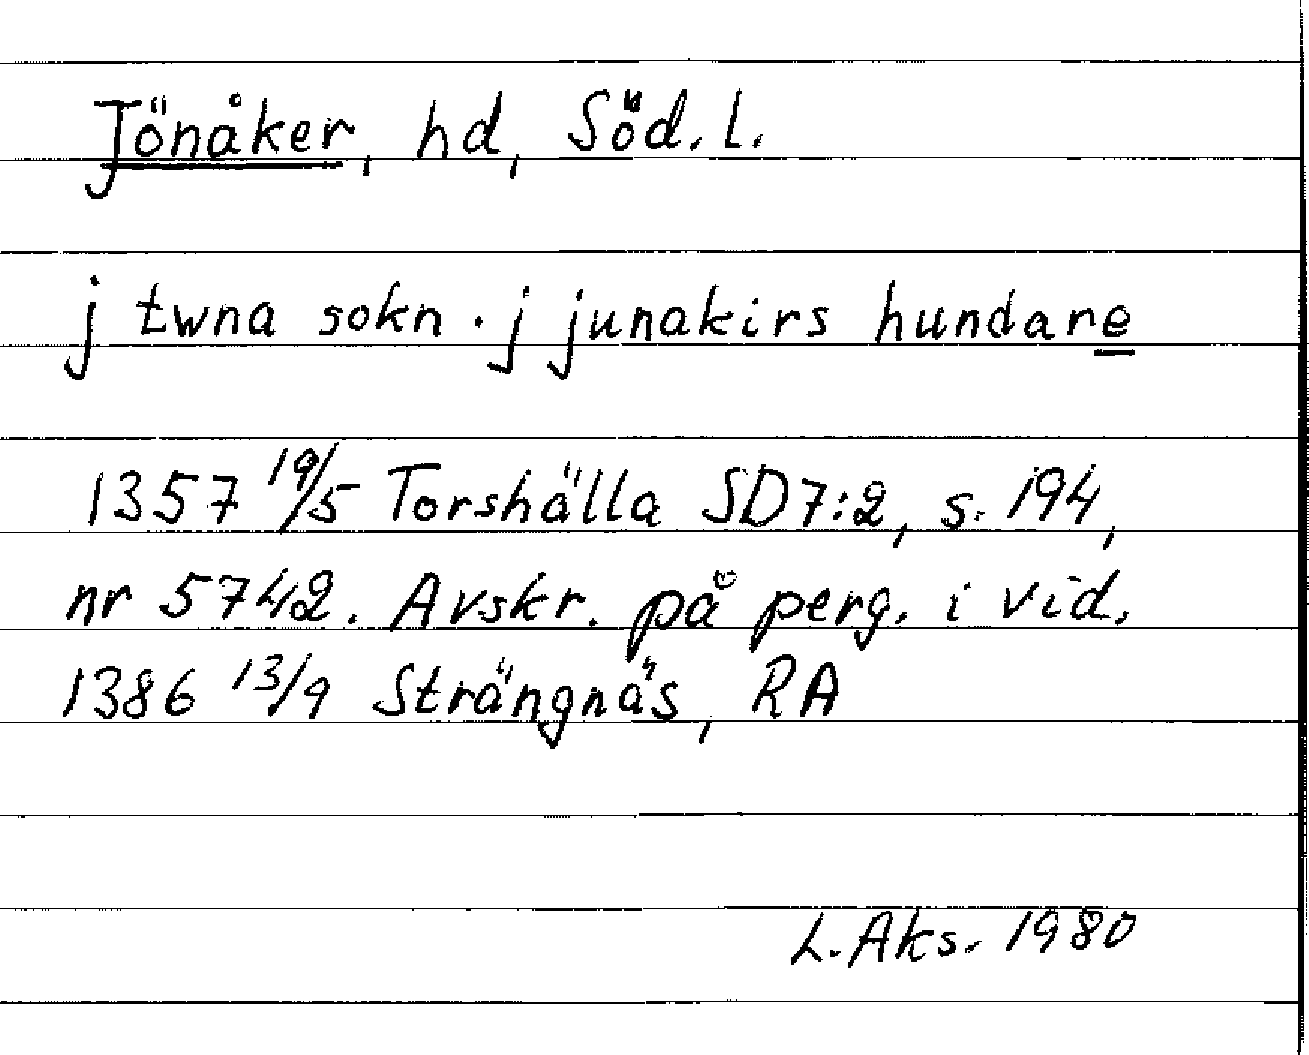 Jönåker, hd, Söd. l.
j twna sokn . j junakirs hundare
1357 19/5 Torshälla SD 7:2, s. 194,
nr 5742. Avskr. på perg. i vid.
1386 13/9 Strängnäs, RA
L. Aks. 1980